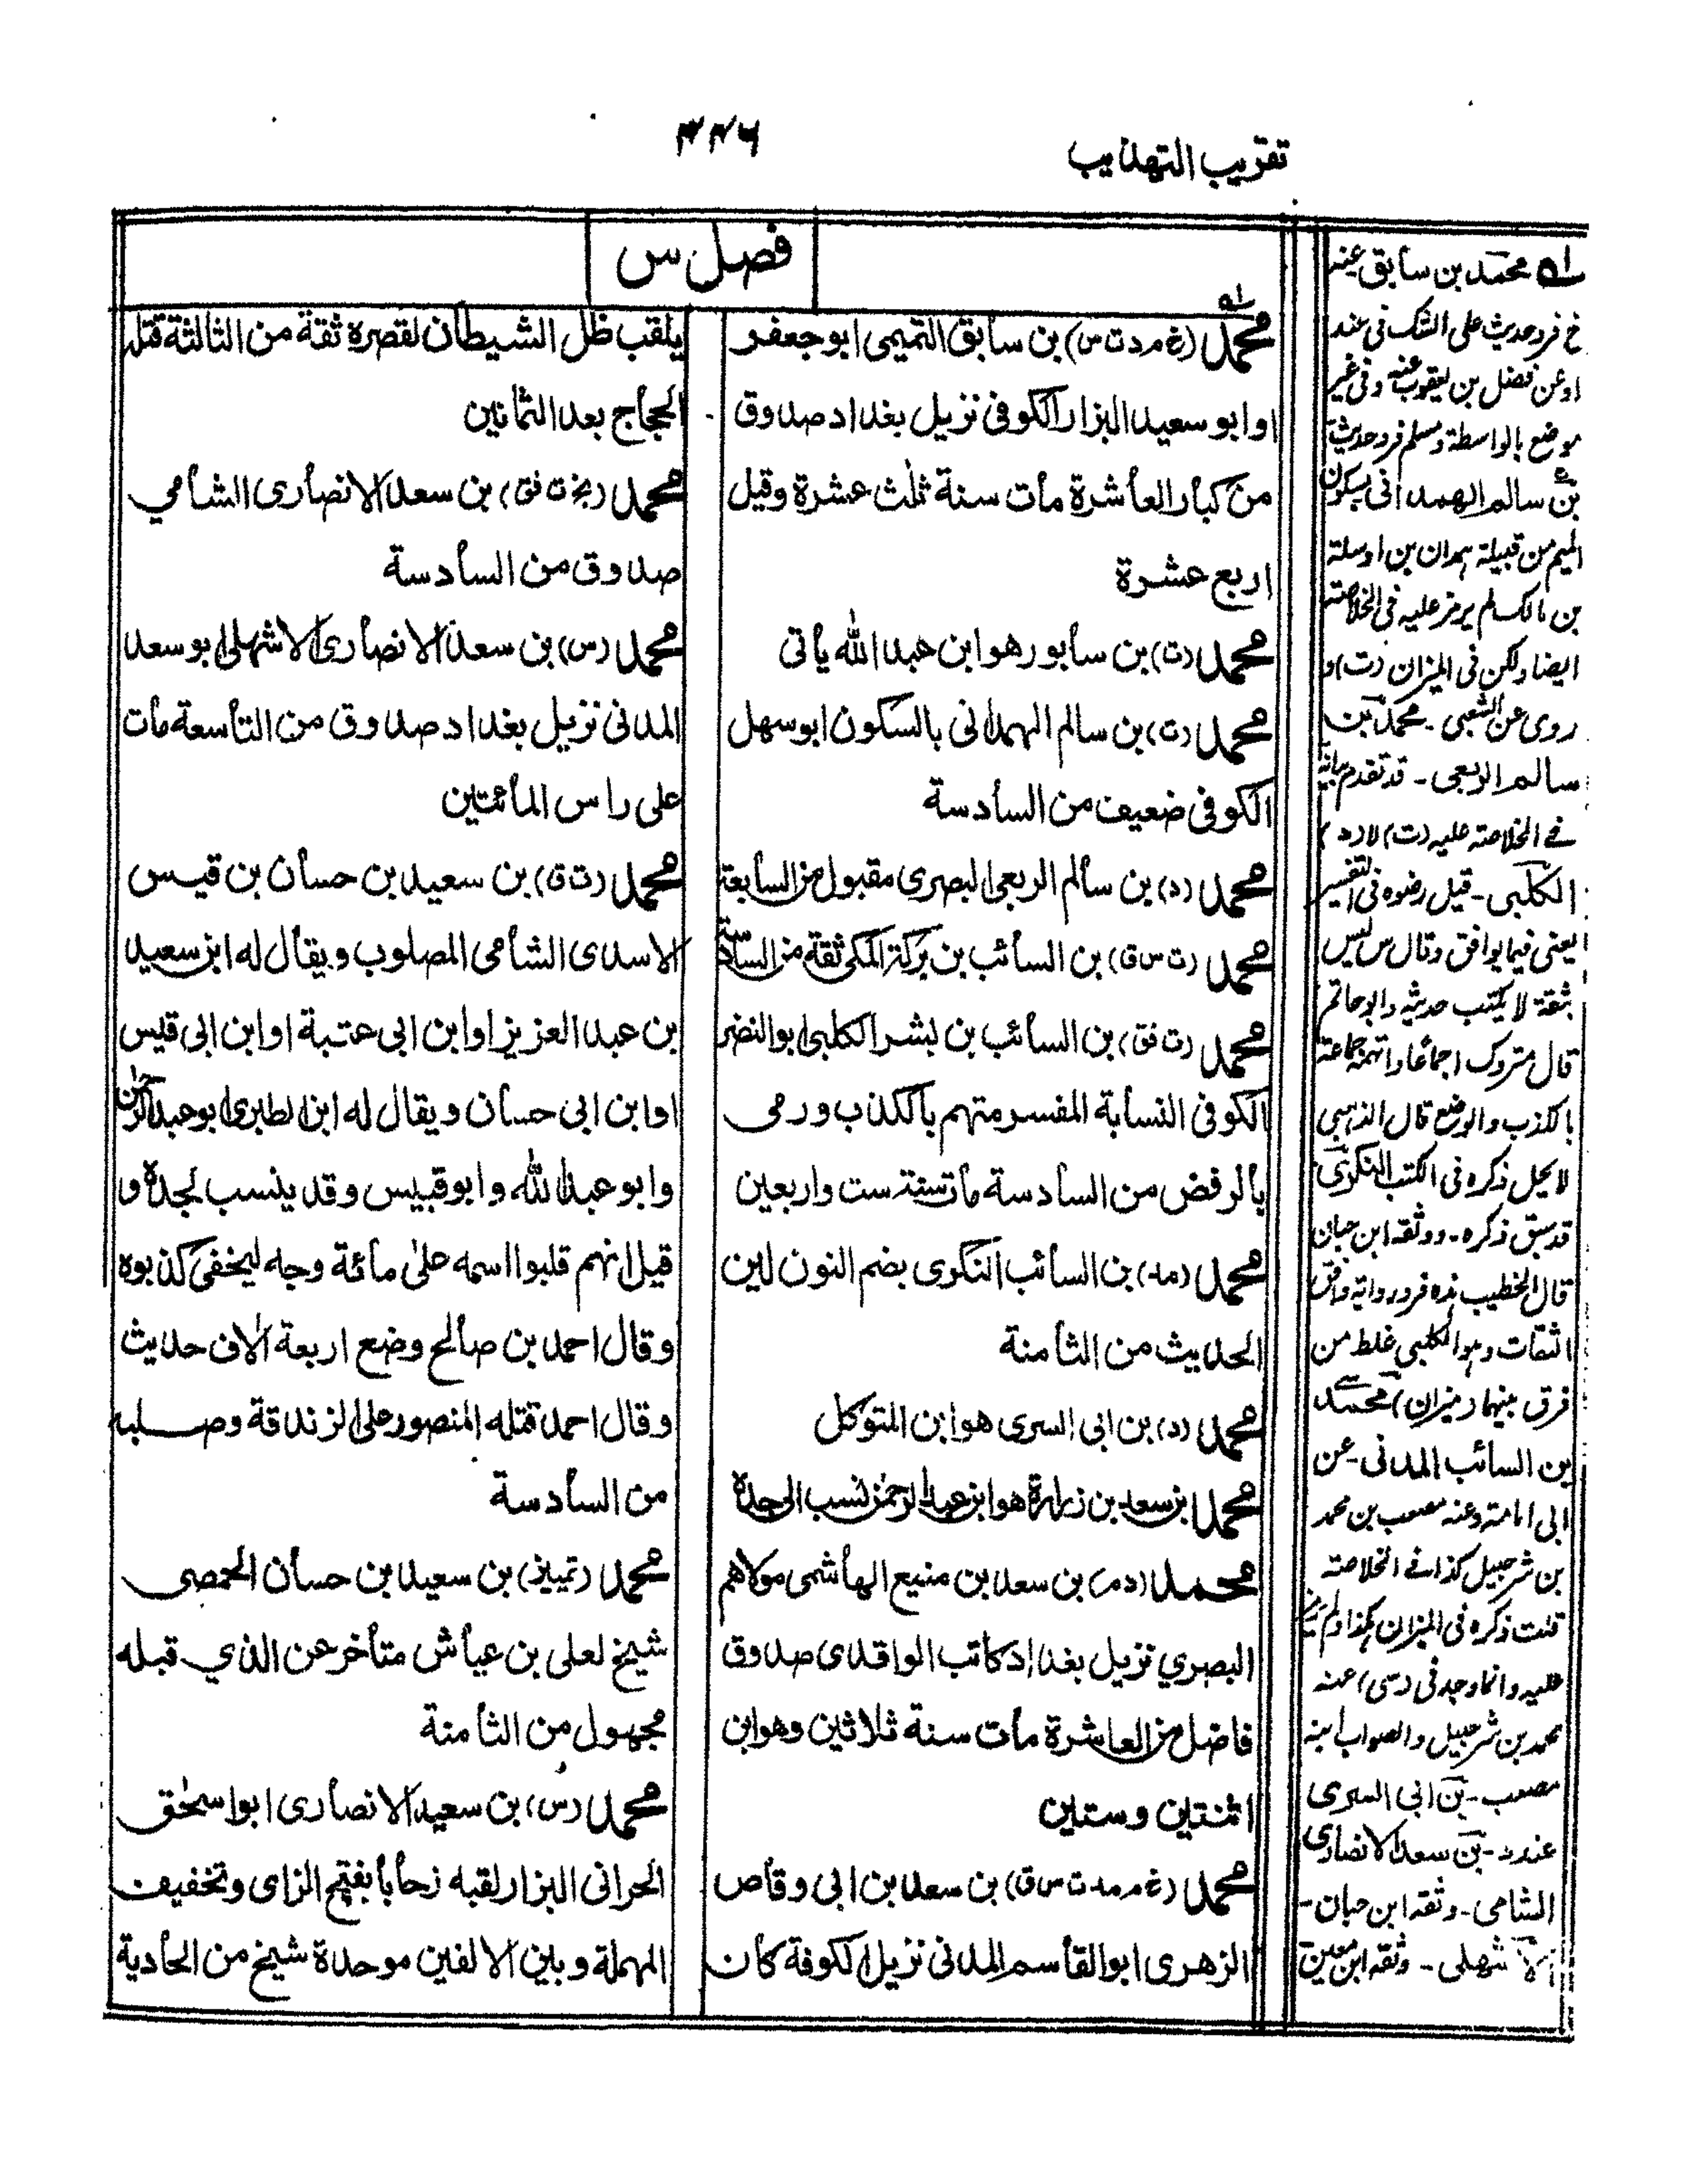 تقريب التهذيب
۳۲۶
فصل س
محمد (خ م د ت س) بن سابق التميمى ابو جعفر
او ابو سعيد البزار الكوفى نزيل بغداد صدوق
من كبار العاشرة مات سنة ثلث عشرة وقيل
اربع عشرة
محمد (ت) بن سابور هو ابن عبد الله يأتى
محمد (ت) بن سالم الهمدانى بالسكون ابو سهل
الكوفى ضعيف من السادسة
محمد (د) بن سالم الربعى البصرى مقبول من السابعة
محمد (ت س ق) بن السائب بن بركة المكى ثقة من السادسة
محمد (ت فق) بن السائب بن بشر الكلبى ابو النضر
الكوفى النسابة المفسر متهم بالكذب ورمى
بالرفض من السادسة مات سنة ست واربعين
محمد (مد) بن السائب النكرى بضم النون لين
الحديث من الثامنة
محمد (د) بن ابى السرى هو ابن المتوكل
محمد بن سعد بن زرارة هو ابن عبد الرحمن نسب الى جده
محمد (د) بن سعد بن منيع الهاشمى مولاهم
البصري نزيل بغداد كاتب الواقدى صدوق
فاضل من العاشرة مات سنة ثلاثين وهو ابن
اثنتين وستين
محمد (خ م مد ت س ق) بن سعد بن ابى وقاص
الزهرى ابو القاسم المدنى نزيل الكوفة كان
يلقب ظل الشيطان لقصره ثقة من الثالثة قتله
الحجاج بعد الثمانين
محمد (بخ ت فق) بن سعد الانصارى الشامي
صدوق من السادسة
محمد (س) بن سعد الانصارى الاشهلى ابو سعد
المدنى نزيل بغداد صدوق من التاسعة مات
على راس المائتين
محمد (ت ق) بن سعيد بن حسان بن قيس
الاسدى الشامى المصلوب ويقال له ابن سعيد
بن عبد العزيز او ابن ابى عتبة او ابن ابى قيس
او ابن ابى حسان ويقال له ابن الطبرى ابو عبد الرحمن
وابو عبد الله وابو قيس وقد ينسب لجده و
قيل انهم قلبوا اسمه على مائة وجه ليخفى كذبوه
وقال احمد بن صالح وضع اربعة الاف حديث
وقال احمد قتله المنصور على الزندقة وصلبه
من السادسة
محمد (تمييز) بن سعيد بن حسان الحمصى
شيخ لعلى بن عياش متأخر عن الذي قبله
مجهول من الثامنة
محمد (س) بن سعيد الانصارى ابو اسحق
الحرانى البزار لقبه زحابا بفتح الزاى وتخفيف
المهملة وبين الالفين موحدة شيخ من الحادية
له محمد بن سابق عنه
خ فرد حديث على الشك فى عنه
او عن فضل بن يعقوب عنه وفى غير
موضع بالواسطة ومسلم فرد حديث
بن سالم الهمدانى بسكون
الميم من قبيلة همدان بن اوسلة
بن مالك لم يرمز عليه فى الخلاصة
ايضا ولكن فى الميزان (ت) و
روى عن الشعبى ـ محمد بن
سالم الربعى ـ قد تقدم بيانه
فى الخلاصة عليه (ت) لا (د)
الكلبى ـ قيل رضوه فى التفسير
يعنى فيما يوافق وقال س ليس
بثقة لا يكتب حديثه وابو حاتم
قال متروك اجماعا واتهمه جماعة
بالكذب والوضع قال الذهبى
لا يحل ذكره فى الكتب النكرى
قد سبق ذكره ـ ووثقه ابن حبان
قال الخطيب هذه فرد رواية وافق
الثقات وهو الكلبى غلط من
فرق بينهما (ميزان) محمد
بن السائب المدنى ـ عن
ابى امامة وعنه مصعب بن محمد
بن شرحبيل كذا فى الخلاصة
قلت ذكره فى الميزان هكذا ولم يرمز
عليه وانما وجد فى (سى) عنه
محمد بن شرحبيل والصواب ابنه
مصعب ـ بن ابى السرى
عند د ـ بن سعد الانصارى
الشامى ـ وثقه ابن حبان ـ
الاشهلى ـ وثقه ابن معين